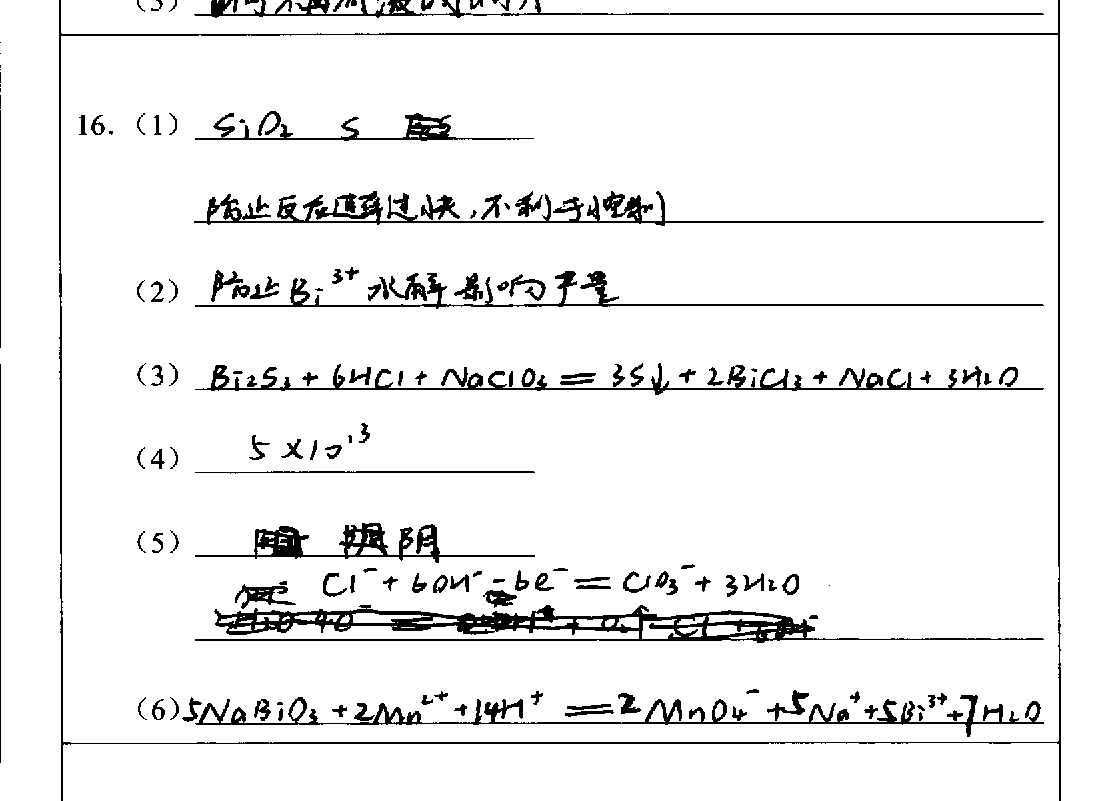 (3)
16. (1) SiO₂ S
防止反应速率过快,不利于控制
(2) 防止Bi³⁺水解影响产量
(3) Bi₂S₃ + 6HCl + NaClO₃ = 3S↓ + 2BiCl₃ + NaCl + 3H₂O
(4) 5×10¹³
(5) 阴
Cl⁻ + 6OH⁻ - 6e⁻ = ClO₃⁻ + 3H₂O
(6) 5NaBiO₃ + 2Mn²⁺ + 14H⁺ = 2MnO₄⁻ + 5Na⁺ + 5Bi³⁺ + 7H₂O